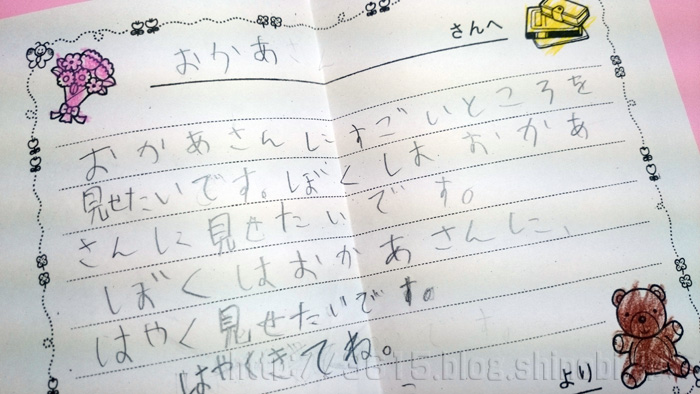 おかあ さんへ
おかあさんにすごいところを
見せたいです。ぼくはおかあ
さんに見せたいです。
ぼくはおかあさんに、
はやく見せたいです。
はやくきてね。
より